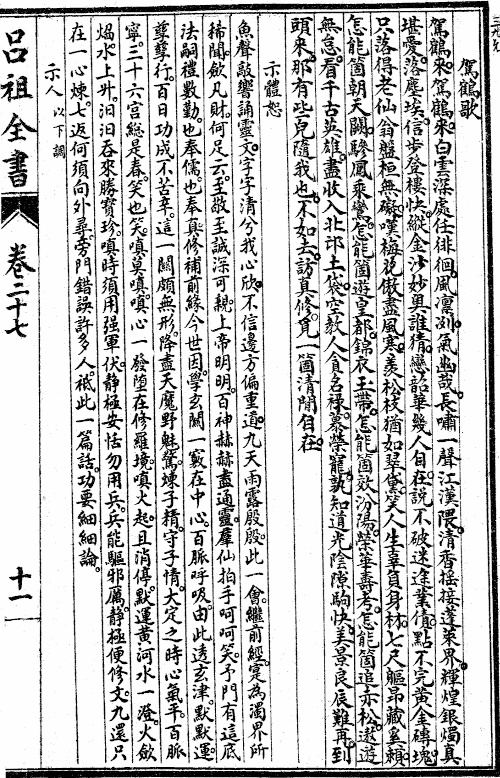 駕鶴歌
駕鶴來。駕鶴來。白雲深處任徘徊。風凜冽。氣幽哉。長嘯一聲江漢隈。清香搖接蓬萊界。輝煌銀燭真
堪愛。落塵埃。信步登樓快縱。金沙妙奧誰猜。戀韶華幾人自在。說不破迷途業債。點不完黃金磚塊。
只落得老仙翁盤桓無礙。嘆梅花傲盡風寒。羨松枝猶如翠黛。笑人生辜負身材。七尺軀昂藏寬賴。
怎能箇朝天闕。驂鳳乘鸞。怎能箇遊皇都。錦衣玉帶。怎能箇效汾陽。榮華壽考。怎能箇追赤松。遨遊
無怠。看千古英雄。盡收入北邙土袋。空教人貪名祿。慕榮寵。孰知道光陰隙駒快。美景良辰難再。到
頭來。那有些兒隨我也。不如去訪真修。覓一箇清閒自在。
示體恕
魚聲敲響誦靈文。字字清兮我心欣。不信邊方偏重道。九天雨露殷殷。此一會。繼前經。寔為濁界所
稀聞。歛凡財。何足云。至敬至誠深可親。上帝明明。百神赫赫盡通靈。羣仙拍手呵呵笑。予門有這底
法嗣禮數勤。也奉儒。也奉真。修補前緣今世因。學玄關一竅在中心。百脈呼吸由此透玄津。默默運。
孽孽行。百日功成不苦辛。這一關頗無形。降盡天魔野魅驚。煉子精。守子情。大定之時心氣平。百脈
寧。三十六宮總是春。笑也笑。嗔莫嗔。嗔心一發墮在修羅境。嗔火起。且消停。默運黃河水一澄。火歛
焰。水上升。汨汨吞來勝寶珍。嗔時須用强軍伏。静極安恬勿用兵。兵能驅邪厲。静極便修文。九還只
在一心煉。七返何須向外尋。旁門錯誤許多人。祗此一篇話。功要細細論。
示人 以下調
呂祖全書
卷二十七
十一